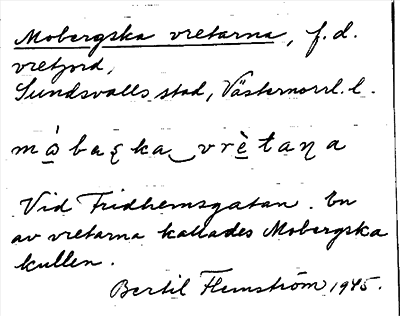 Mobergska vretarna, f.d.
vretjord,
Sundsvalls stad, Västernorrl. l.
må̀baʂka‿vrètaɳa
Vid Fridhemsgatan. En
av vretarna kallades Mobergska
kullen.
Bertil Flemström 1945.